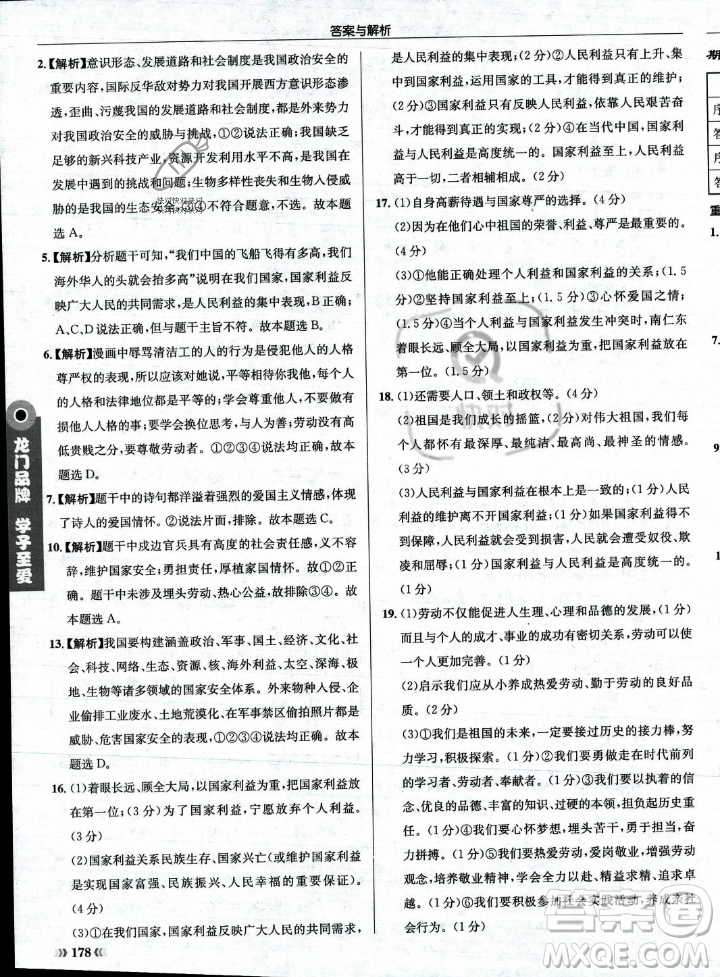 答案与解析
2.【解析】意识形态、发展道路和社会制度是我国政治安全的
重要内容，国际反华敌对势力对我国开展西方意识形态渗
透，歪曲、污蔑我国的发展道路和社会制度，这些都是当前
对我国政治安全的威胁与挑战，①②说法正确；我国缺乏
足够的新兴科技产业，资源开发利用水平不高，是我国在
发展中遇到的挑战和问题；生物多样性丧失和生物入侵威
胁的是我国的生态安全，③④不符合题意，不选。故本题
选A。
5.【解析】分析题干可知，“我们中国的飞船飞得有多高，我们
海外华人的头就会抬多高”说明，在我国，国家利益反
映广大人民的共同需求，是人民利益的集中表现，B正确；
A、C、D说法正确，但与题干主旨不符。故本题选B。
6.【解析】漫画中辱骂清洁工的人的行为是侵犯他人的人格
尊严权的表现，没有认识到人们虽然有分工的不同，但人
的人格和法律地位都是平等的；我们不做有意或无意
损他人人格的事情；要学会换位思考，与人为善；劳动没有
贵贱之分，要尊敬劳动者。①②③④说法均正确，故本
题选D。
7.【解析】题干中的诗句都洋溢着强烈的爱国主义情感，体
现了诗人的爱国情怀。①②说法片面，排除。故本题选C。
10.【解析】题干中戍边官兵具有高度的社会责任感，义不容
辞，维护国家安全；勇担使命，厚植家国情怀。故①②正
确。题干未涉及埋头劳动、热心公益，故排除③④。故
本题选A。
13.【解析】我国要构建涵盖政治、军事、国土、经济、文化、社
会、科技、网络、生态、资源、核、海外利益、太空、深海、极
地、生物等诸多领域的国家安全体系。走私国家文物、企
业偷排工业废水、土地荒漠化、在军事禁区偷拍等都属于
威胁、危害国家安全的现象，故①②③④都符合题意。故
本题选D。
16.(1)着眼长远、顾全大局，以国家利益为重，把国家利益放
在第一位；(3分)为了国家利益，宁愿放弃个人利益。
(3分)
(2)国家利益关系民族生存、国家兴亡(或维护国家利益
是实现国家富强、民族振兴、人民幸福的重要保证)。
(4分)
(3)①在我国，国家利益反映广大人民的共同需求，
是人民利益的集中表现；(2分)②人民利益只有上升、集
中到国家利益，运用国家的工具，才能得到真正的维护；
(2分)③国家利益只有反映人民利益，依靠人民艰苦奋
斗，才能得到真正的实现；(2分)④在当代中国，国家利
益与人民利益是高度统一的。国家利益与人民利益相辅
相成，二者相辅相成。(2分)
17.(1)自身高薪待遇与国家尊严的选择。(4分)
(2)在他们心中祖国的荣誉、尊严、利益是最重要的。
(4分)
(3)①正确处理了个人利益和国家利益的关系；(1.5
分)②坚持国家利益至上；(1.5分)③心怀爱国之情；
(1.5分)④当个人利益与国家利益发生冲突时，南仁东
有着眼长远、顾全大局的胸襟和气魄。(1.5分)
18.(1)还需要人口、领土和政权等。(4分)
(2)祖国是我们成长的摇篮，(2分)对伟大祖国，我们每
个人都怀有最深厚、最纯洁、最高尚、最神圣的情感。
(3分)
(3)国家利益与人民利益在根本上是一致的。(1分)人
民利益的维护离不开国家利益的实现，(1分)若国家利
益不能实现，人民的生命安全就可能受到威胁、欺
凌与屈辱。(1分)国家利益与人民利益是高度统一的。
(1分)
19.(1)劳动不仅能促进人生理、心理和品德的发展，(1分)
而且与个人的成才、事业的成功有密切关系。(1分)
(2)启示我们从小养成热爱劳动、勤于劳动的习惯和
品质。(2分)
(3)①我们是祖国的未来，一定要接过历史的接力棒，努
力学习，积极探索。(1分)②我们要成为走在时代前列
的学习者、劳动者、奉献者。(1分)③我们要有坚定的自
信、优良的品德、丰富的知识和过硬的本领，勇担重
任。(1分)④我们要心怀梦想，埋头实干、不懈奋斗、奋
力拼搏。(1分)⑤我们要热爱劳动，勤奋劳动，从劳动中
培养优秀品质，增长智慧才干，学会全面提高、追求卓
越。(1分)⑥我们要积极参加社会实践活动，养成亲社
会行为。(1分)
龙门品牌 学子至爱
178